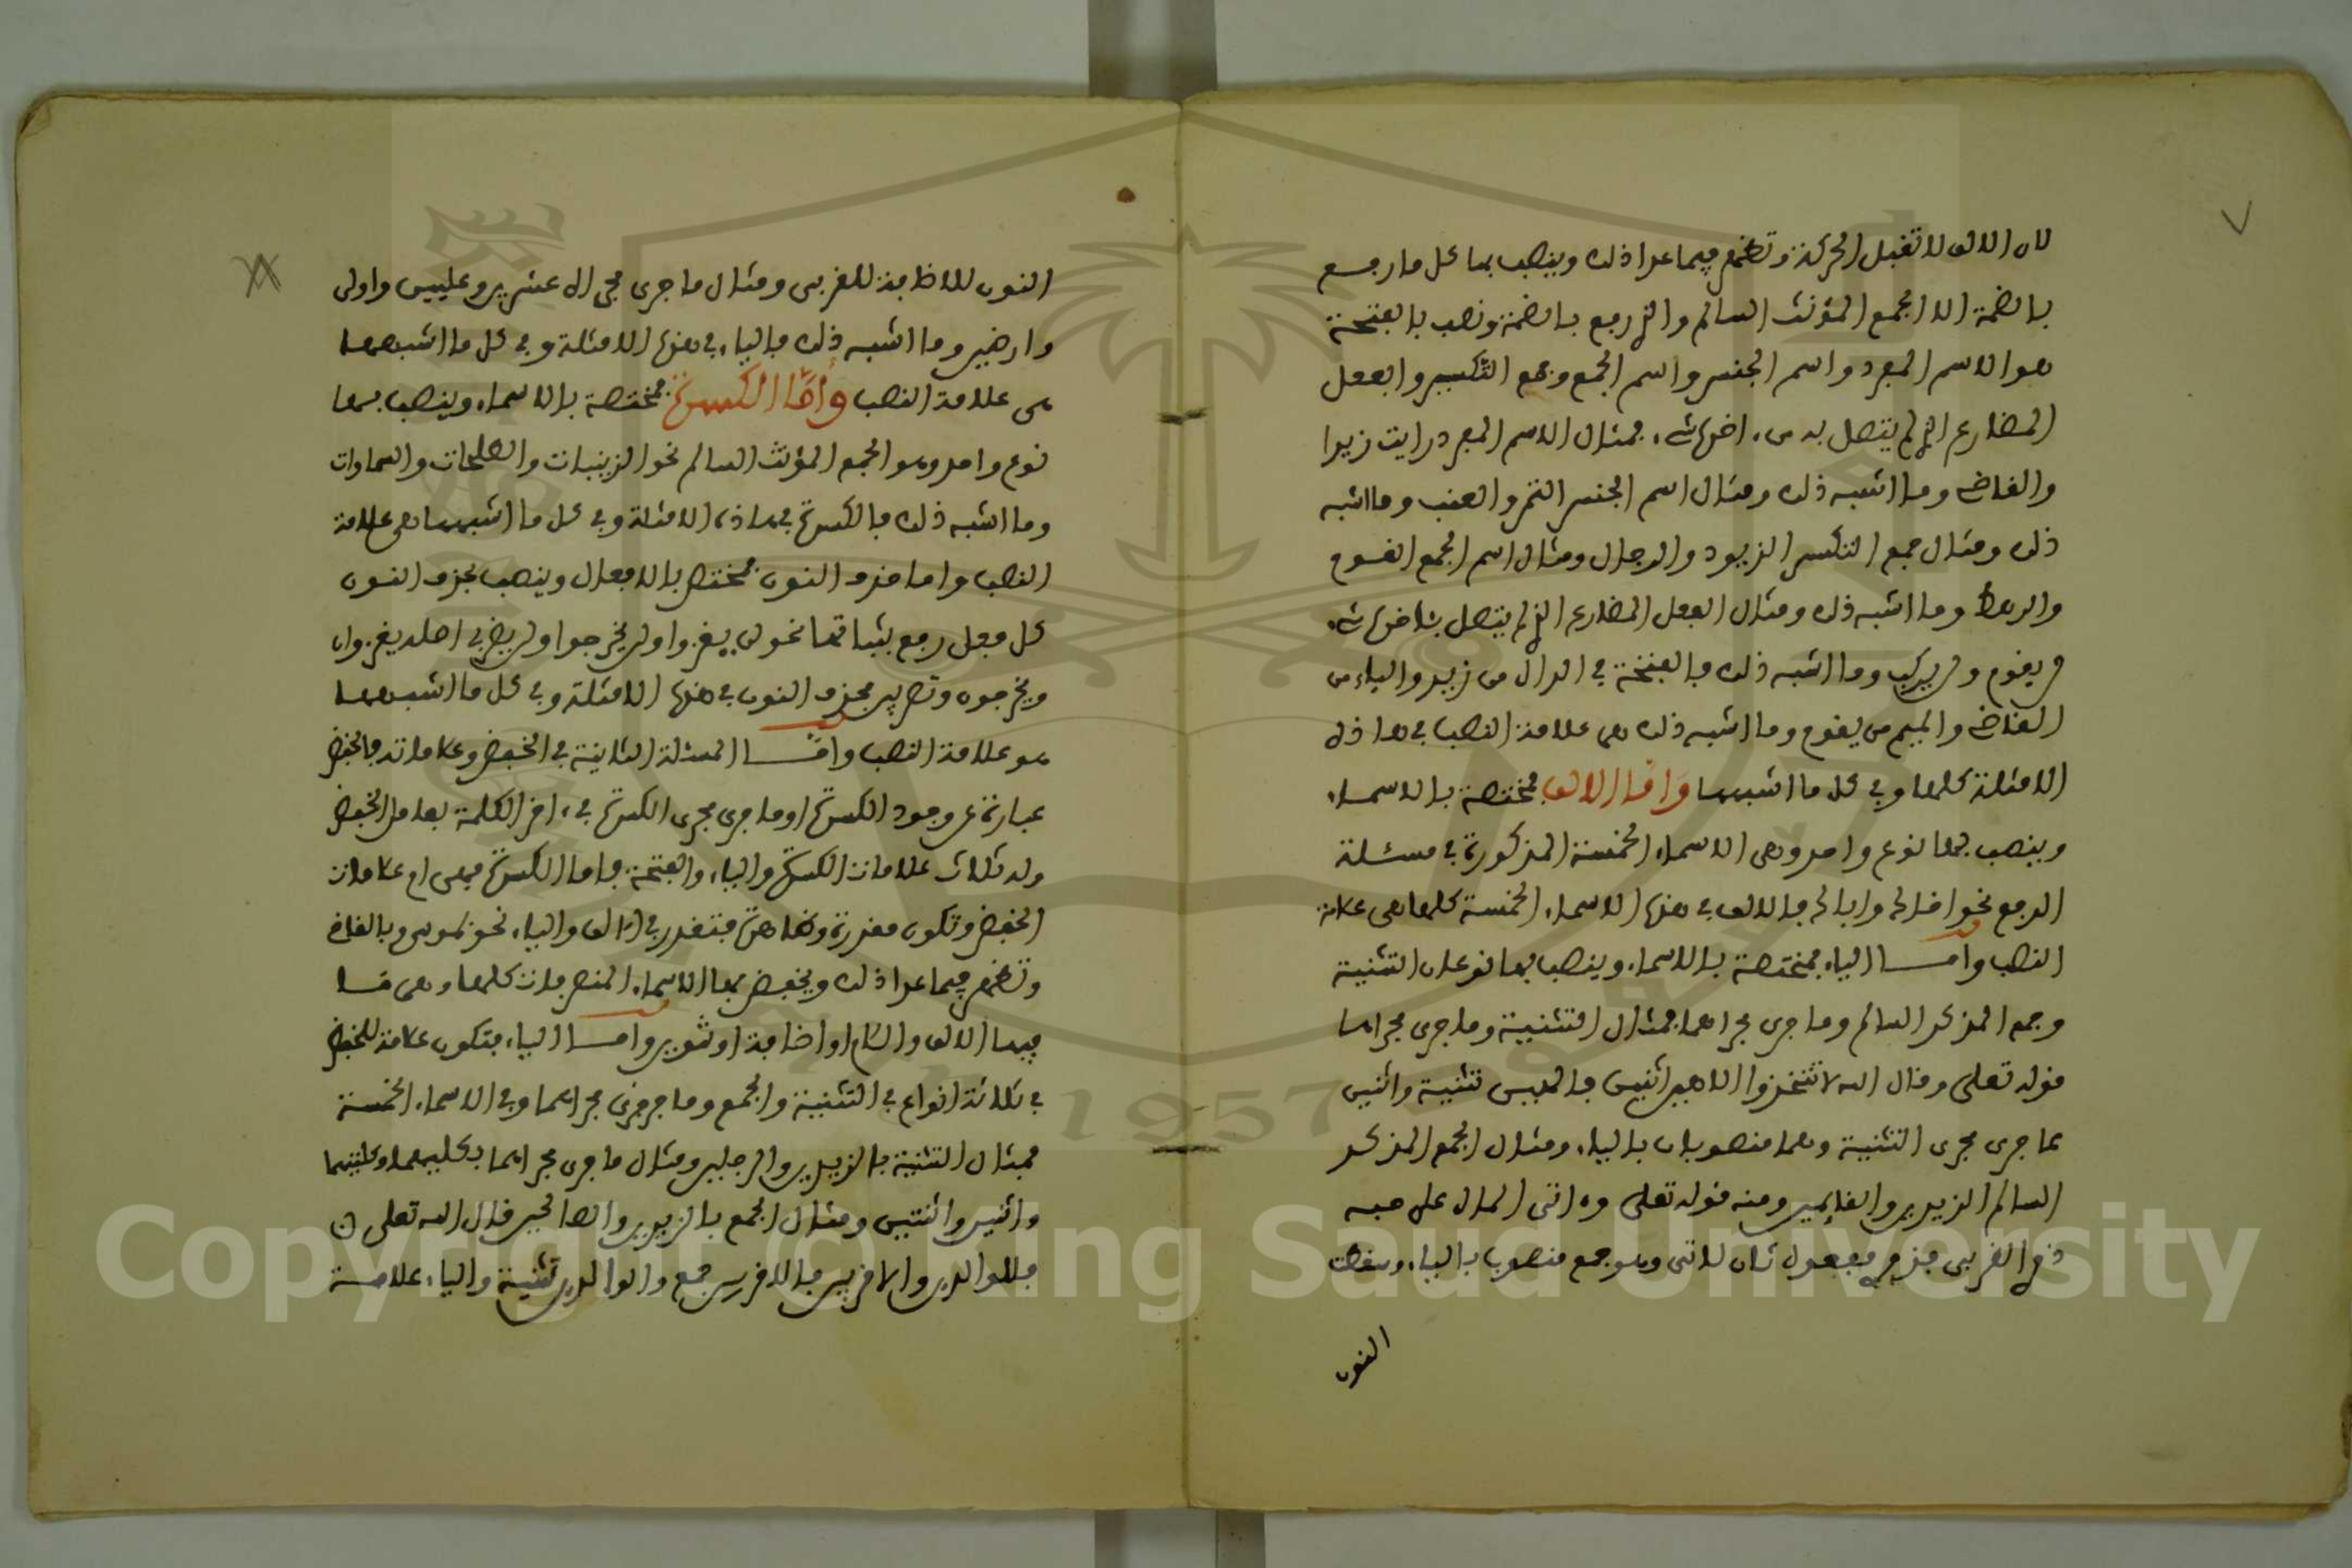 لان الالف لا تقبل الحركة وتظهر فيما عدا ذلك وينصب بها كل ما رفع
بالضمة الا الجمع المؤنث السالم والذي رفع بالضمة ونصب بالفتحة
هو الاسم المفرد واسم الجنس واسم الجمع وجمع التكسير والفعل
المضارع الذي لم يتصل به من ءاخره شيء فمثال الاسم المفرد رايت زيدا
والقاضي وما اشبه ذلك ومثال اسم الجنس التمر والعنب وما اشبه
ذلك ومثال جمع التكسير الزيود والرجال ومثال اسم الجمع القوم
والرهط وما اشبه ذلك ومثال الفعل المضارع الذي لم يتصل بئاخره شيء
لن يقوم ولن يركب وما اشبه ذلك فالفتحة في الدال من زيد والياء من
القاضي والميم من يقوم وما اشبه ذلك هي علامة النصب في هذه
الامثلة كلها وفي كل ما اشبهها واما الالف فمختصة بالاسماء
وينصب بها نوع واحد وهي الاسماء الخمسة المذكورة في مسئلة
الرفع نحو اخاك واباك فالالف في هذه الاسماء الخمسة كلها هي علامة
النصب واما الياء فمختصة بالاسماء وينصب بها نوعان التثنية
وجمع المذكر السالم وما جرى مجراهما فمثال التثنية وما جرى مجراها
قوله تعلى وقال الله لا تتخذوا الاهين اثنين فالهين تثنية واثنين
مما جرى مجرى التثنية وهما منصوبان بالياء ومثال الجمع المذكر
السالم الزيدين والقايمين ومنه قوله تعلى وءاتى المال على حبه
ذوي القربى فذوي مفعول ثان لاتى وهو جمع منصوب بالياء وسقطت
النون
النون للاضافة للقربى ومثال ما جرى مجراه عشرين وعليين واولي
وارضين وما اشبه ذلك فالياء في هذه الامثلة وفي كل ما اشبهها
هي علامة النصب وأمّا الكسرة فمختصة بالاسماء وينصب بها
نوع واحد وهو الجمع المؤنث السالم نحو الزينبات والصلحات والسماوات
وما اشبه ذلك فالكسرة في هاذه الامثلة وفي كل ما اشبهها هي علامة
النصب واما حذف النون فمختص بالافعال وينصب بحذف النون
كل فعل رفع بثباتها نحو لن يغزوا ولن يخرجوا ولن تضربي اصله يغزوان
ويخرجون وتضربين فحذف النون في هذه الامثلة وفي كل ما اشبهها
هو علامة النصب وامّا المسئلة الثانية في الخفض وعلاماته فالخفض
عبارة عن وجود الكسرة او ما جرى مجرى الكسرة في ءاخر الكلمة بعامل الخفض
وله ثلاث علامات الكسرة والياء والفتحة فاما الكسرة فهي ام علامات
الخفض وتكون مقدرة وظاهرة فتقدر في الالف والياء نحو بموسى وبالقاضي
وتظهر فيما عدا ذلك ويخفض بها الاسماء المنصرفات كلها وهي ما
فيها الالف واللام او اضافة او تنوين واما الياء فتكون علامة للخفض
في ثلاثة انواع في التثنية والجمع وما جرى مجراهما وفي الاسماء الخمسة
فمثال التثنية بالزيدين والرجلين ومثال ما جرى مجراهما بكليهما وكلتيهما
واثنين واثنتين ومثال الجمع بالزيدين والصالحين قال الله تعلى
فللوالدين والاقربين فالاقربين جمع والوالدين تثنية والياء علامة